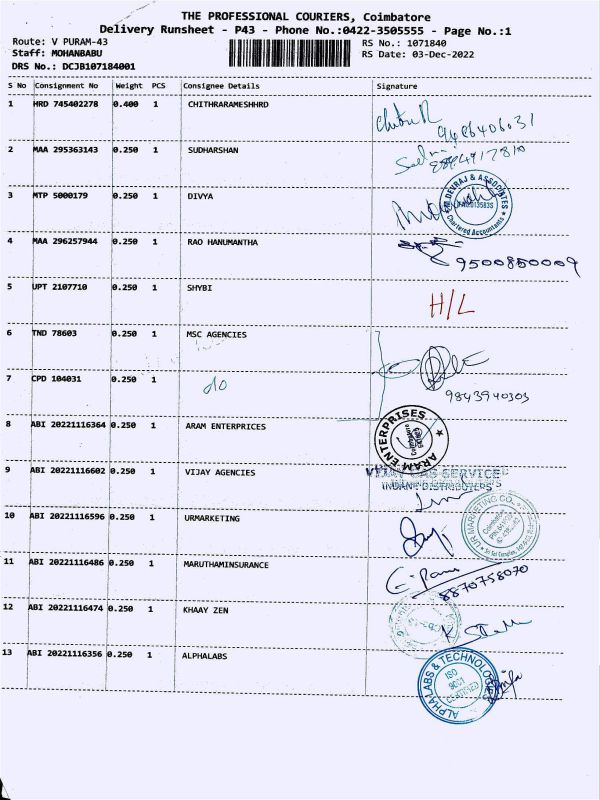 THE PROFESSIONAL COURIERS, Coimbatore
Delivery Runsheet - P43 - Phone No.:0422-3505555 - Page No.:1
Route: V PURAM-43 RS No.: 1071840
Staff: MOHANBABU RS Date: 03-Dec-2022
DRS No.: DCJB107184001
S No Consignment No Weight PCS Consignee Details Signature
1 HRD 745402278 0.400 1 CHITHRARAMESHHRD
9486406031
2 MAA 295363143 0.250 1 SUDHARSHAN
3 MTP 5000179 0.250 1 DIVYA
DEVRAJ & ASSOCIATES
Chartered Accountants
4 MAA 296257944 0.250 1 RAO HANUMANTHA
9500850009
5 UPT 2107710 0.250 1 SHYBI
H/L
6 TND 78603 0.250 1 MSC AGENCIES
7 CPD 104031 0.250 1 do
9843940303
8 ABI 20221116364 0.250 1 ARAM ENTERPRICES
ARAM ENTERPRISES
9 ABI 20221116602 0.250 1 VIJAY AGENCIES
VIJAY GAS SERVICE
INDANE DISTRIBUTERS
10 ABI 20221116596 0.250 1 URMARKETING
UR MARKETING CO.
11 ABI 20221116486 0.250 1 MARUTHAMINSURANCE
8870758070
12 ABI 20221116474 0.250 1 KHAAY ZEN
13 ABI 20221116356 0.250 1 ALPHALABS
ALPHA LABS & TECHNOLOGIES
ISO
9001
CERTIFIED